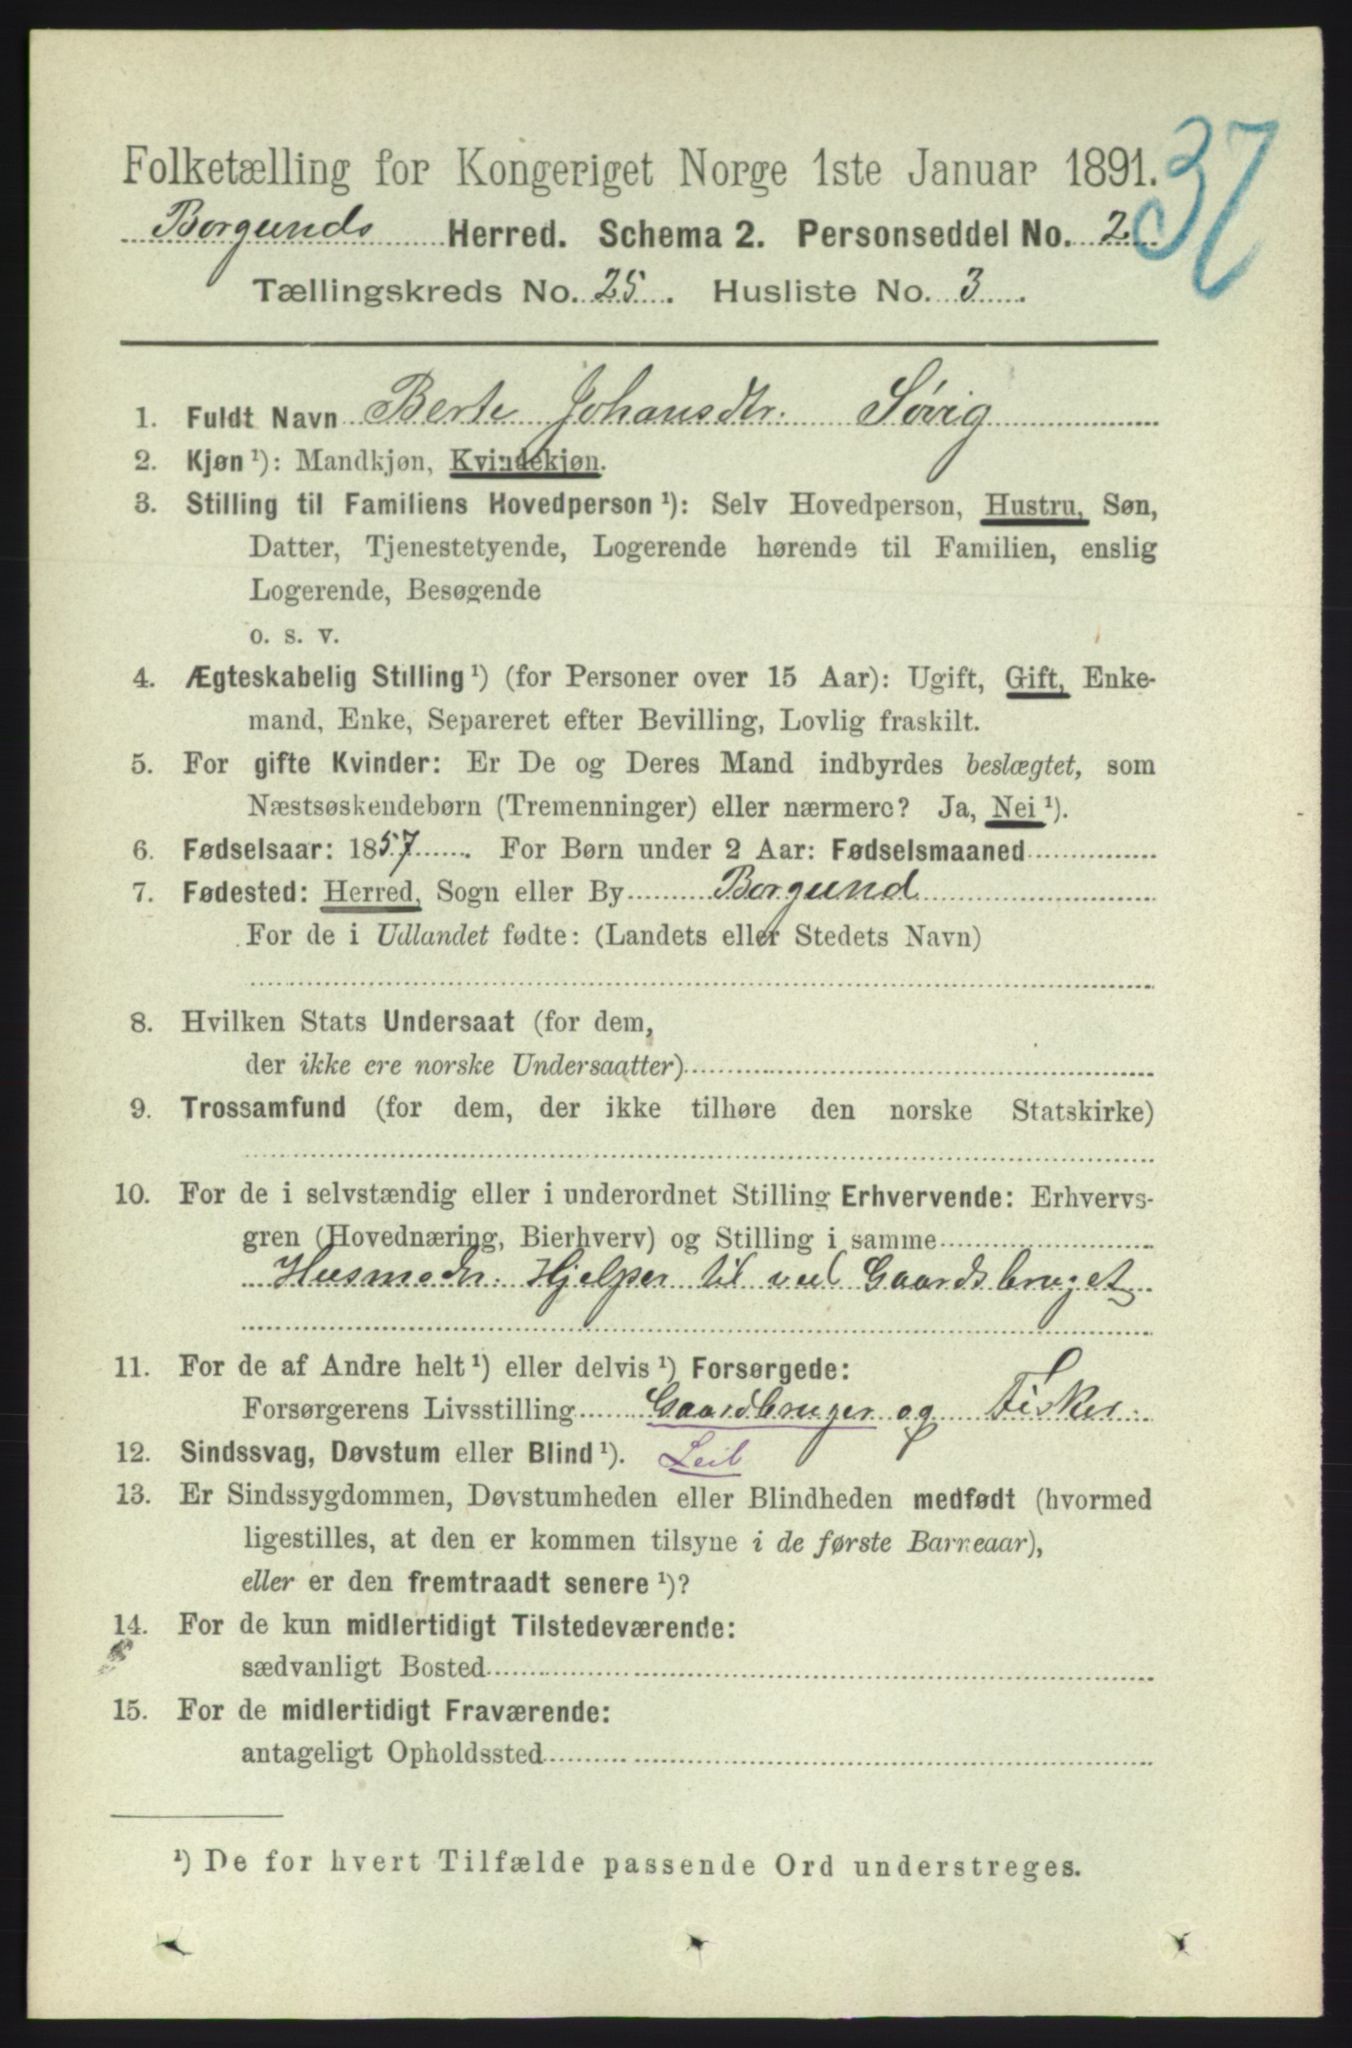 37
Folketælling for Kongeriget Norge 1ste Januar 1891.
Borgunds Herred. Schema 2. Personseddel No. 2
Tællingskreds No. 25. Husliste No. 3.
1. Fuldt Navn Berte Johansdtr. Søvig
2. Kjøn ¹): Mandkjøn, Kvindekjøn.
3. Stilling til Familiens Hovedperson ¹): Selv Hovedperson, Hustru, Søn,
Datter, Tjenestetyende, Logerende hørende til Familien, enslig
Logerende, Besøgende
o. s. v.
4. Ægteskabelig Stilling ¹) (for Personer over 15 Aar): Ugift, Gift, Enke-
mand, Enke, Separeret efter Bevilling, Lovlig fraskilt.
5. For gifte Kvinder: Er De og Deres Mand indbyrdes beslægtet, som
Næstsøskendebørn (Tremenninger) eller nærmere? Ja, Nei ¹).
6. Fødselsaar: 1857. For Børn under 2 Aar: Fødselsmaaned
7. Fødested: Herred, Sogn eller By Borgund
For de i Udlandet fødte: (Landets eller Stedets Navn)
8. Hvilken Stats Undersaat (for dem,
der ikke ere norske Undersaatter)
9. Trossamfund (for dem, der ikke tilhøre den norske Statskirke)
10. For de i selvstændig eller i underordnet Stilling Erhvervende: Erhvervs-
gren (Hovednæring, Bierhverv) og Stilling i samme
Husmodr. Hjelper til ved Gaardsbruget
11. For de af Andre helt ¹) eller delvis ¹) Forsørgede:
Forsørgerens Livsstilling Gaardbruger og Fisker.
12. Sindssvag, Døvstum eller Blind ¹).
13. Er Sindssygdommen, Døvstumheden eller Blindheden medfødt (hvormed
ligestilles, at den er kommen tilsyne i de første Barneaar),
eller er den fremtraadt senere ¹)?
14. For de kun midlertidigt Tilstedeværende:
sædvanligt Bosted
15. For de midlertidigt Fraværende:
antageligt Opholdssted
¹) De for hvert Tilfælde passende Ord understreges.